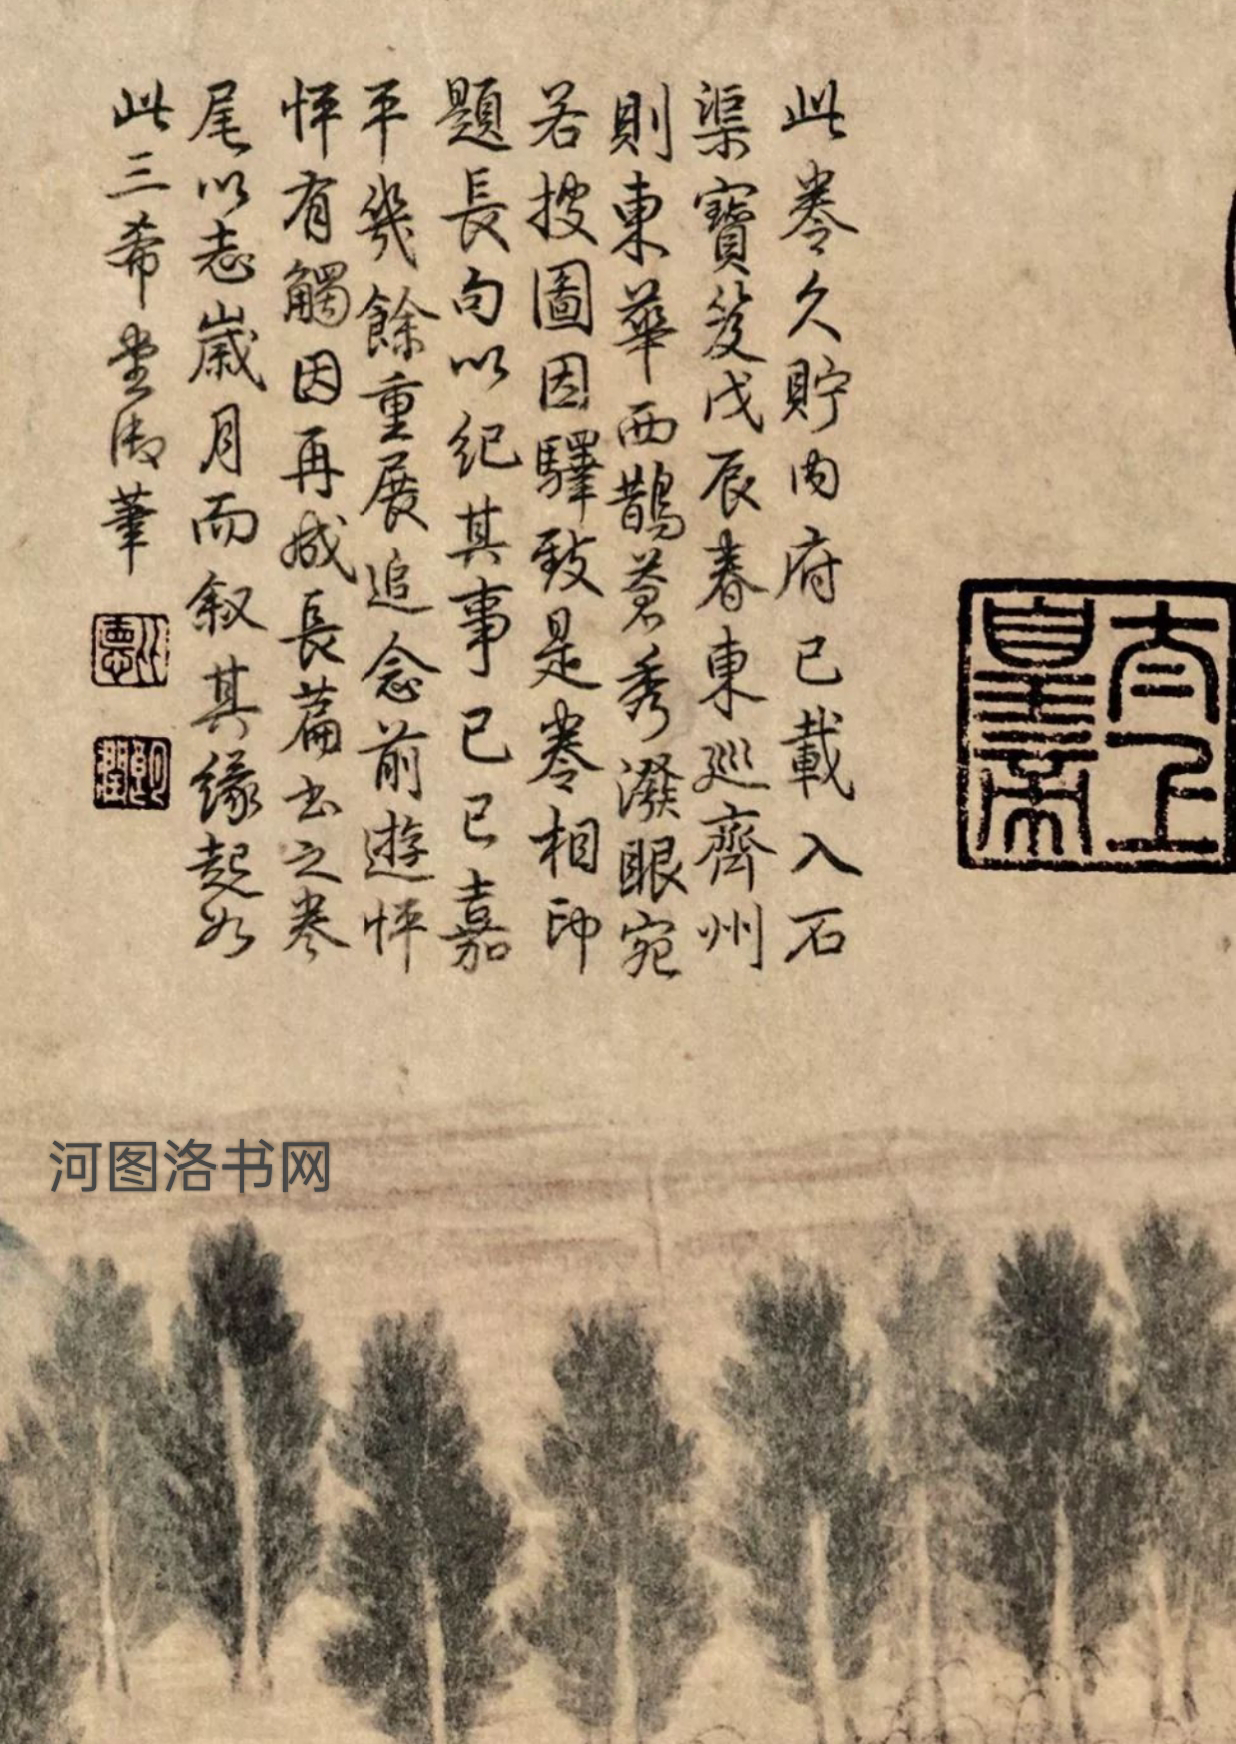 此卷久貯內府已載入石
渠寶笈戊辰春東巡齊州
則東華西鵲蒼秀潑眼宛
若披圖因驛致是卷相印
題長句以紀其事己巳嘉
平幾餘重展追念前遊怦
怦有觸因再成長篇書之卷
尾以志歲月而敘其緣起如
此三希堂御筆
太上
皇帝
河图洛书网